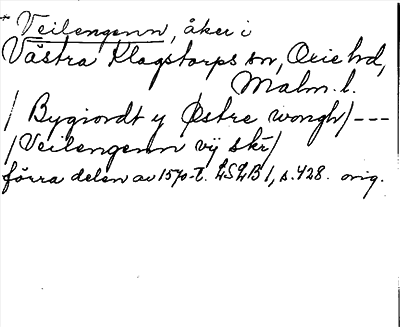 * Veilengenn, åker i
Västra Klagstorps sn, Oxie hd,
Malm. l.
/ Bygiordt y Østre wongh/ ---
/Veilengenn vÿ skr/
förra delen av 1570-t. LSLB 1, s. 428. orig.